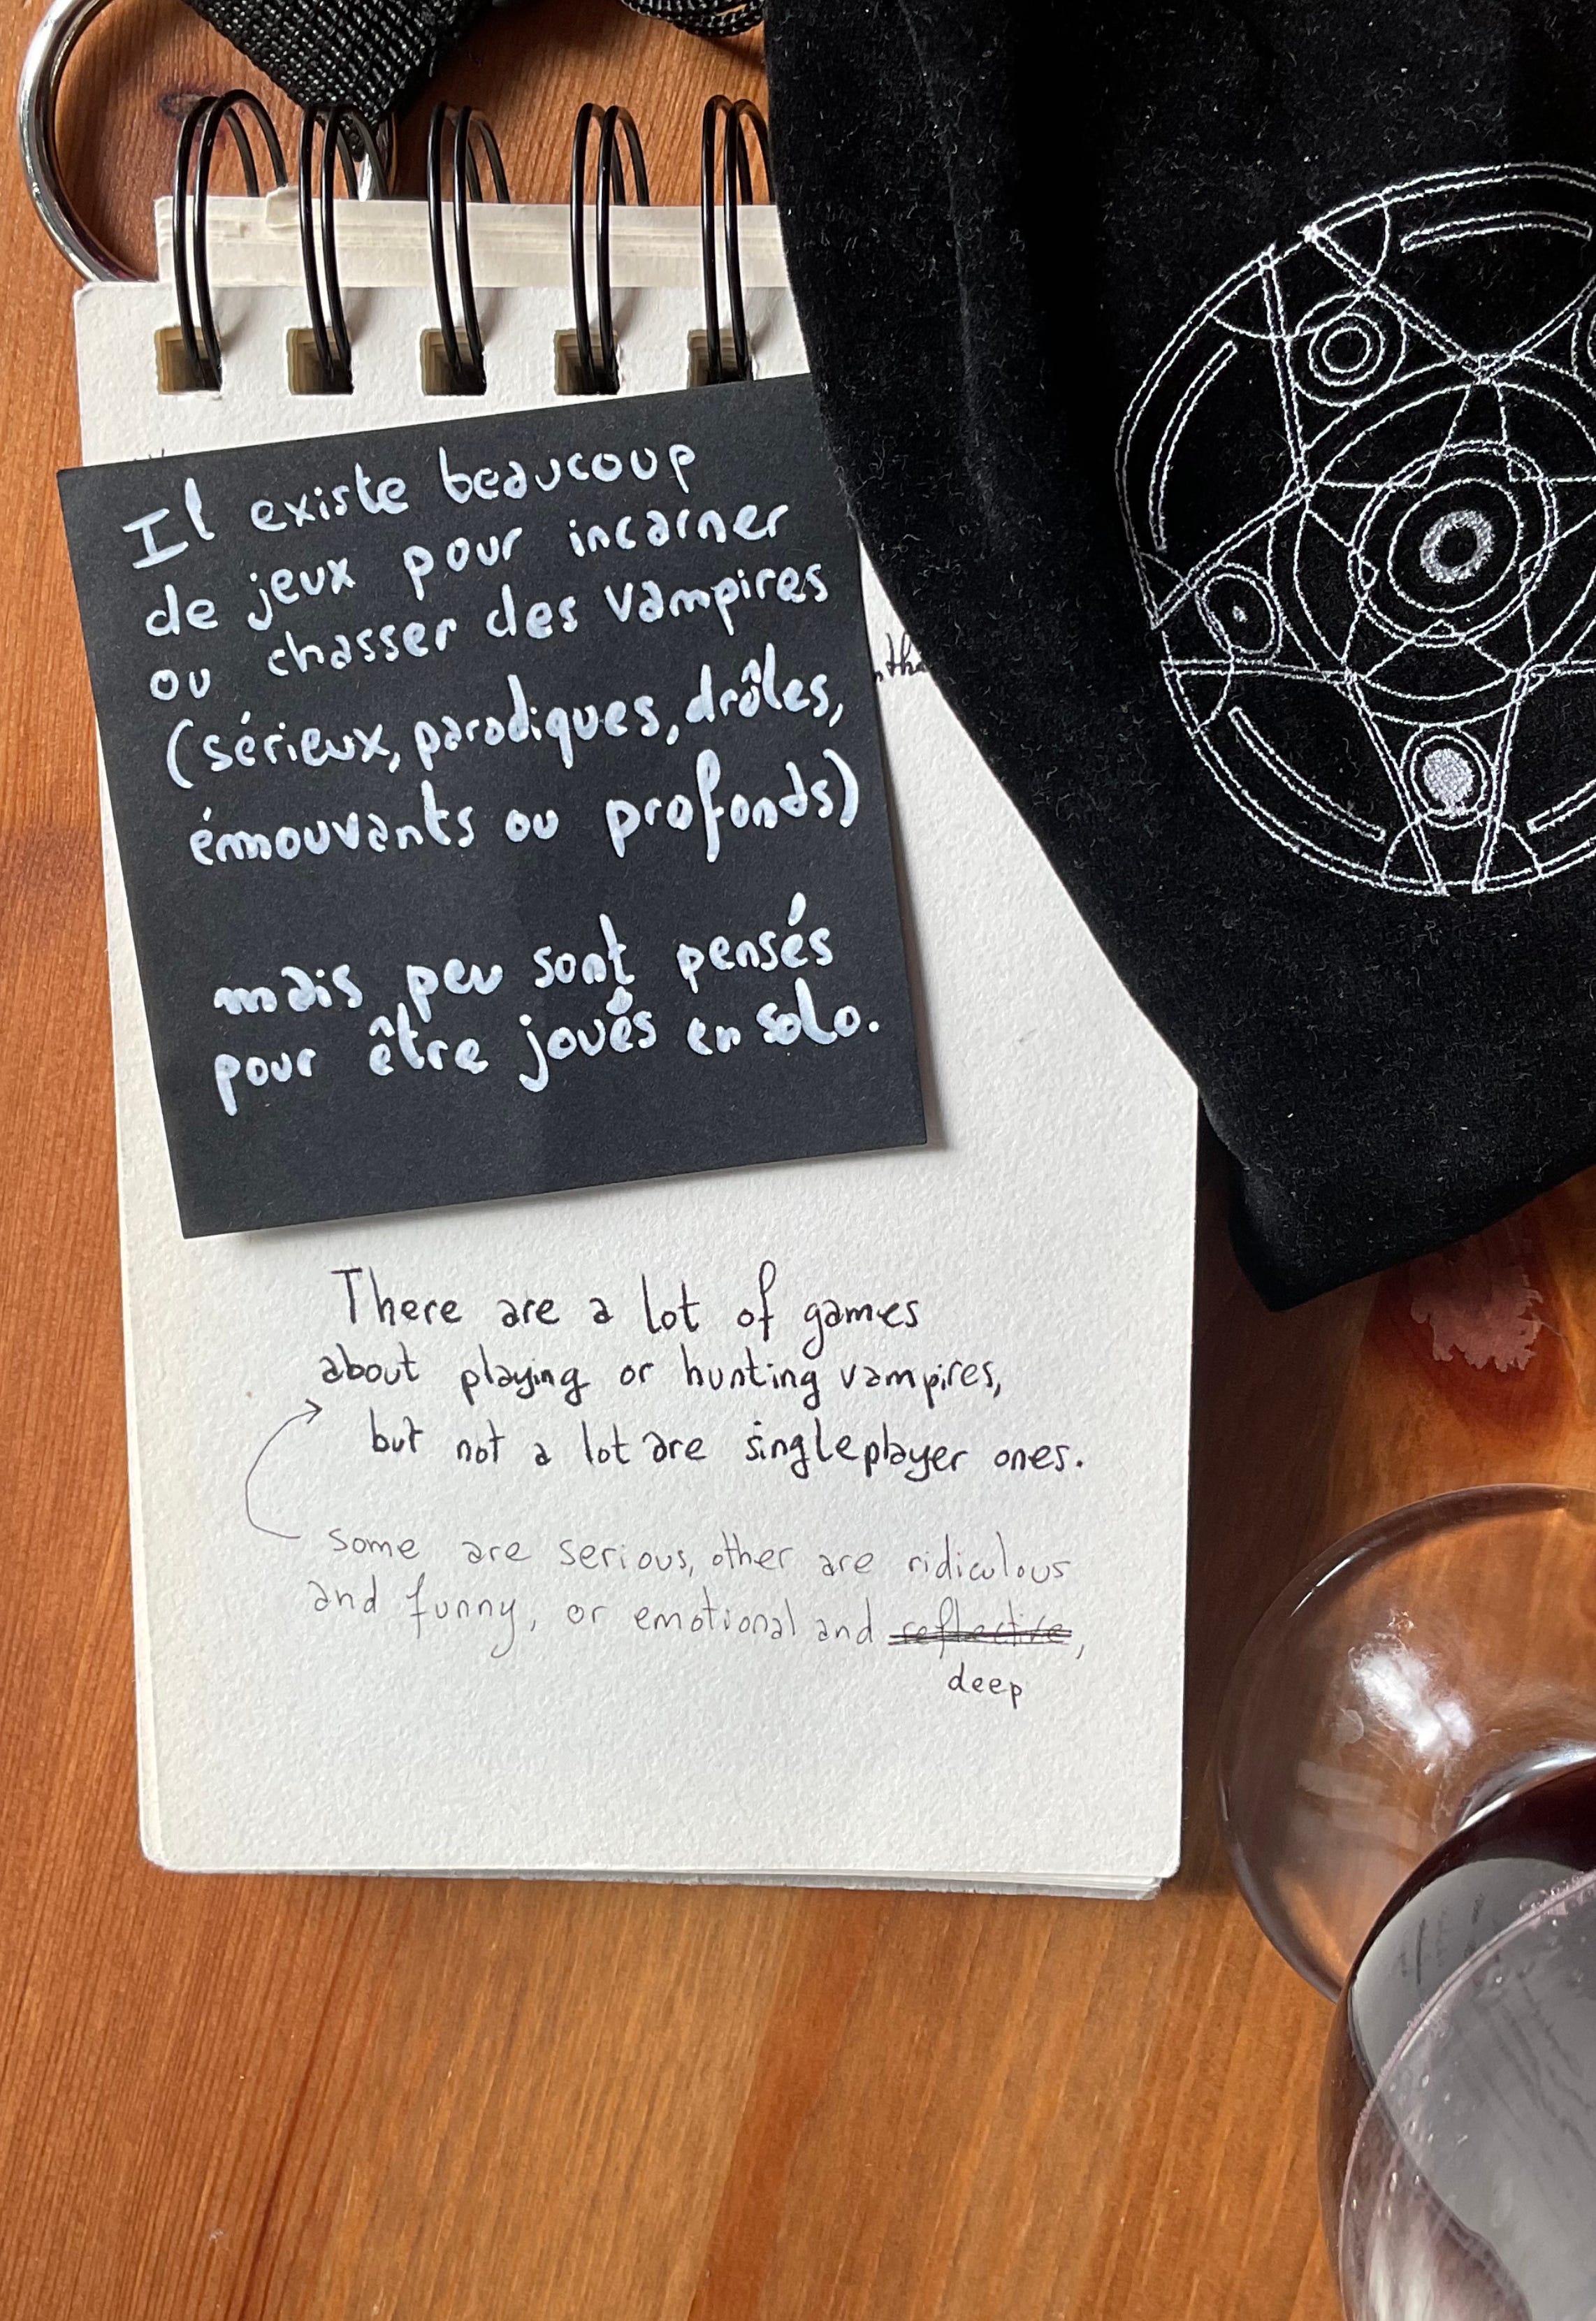 Il existe beaucoup
de jeux pour incarner
ou chasser des vampires
(sérieux, parodiques, drôles,
émouvants ou profonds)
mais peu sont pensés
pour être joués en solo.
There are a lot of games
about playing or hunting vampires,
but not a lot are singleplayer ones.
some are serious, other are ridiculous
and funny, or emotional and reflective,
deep